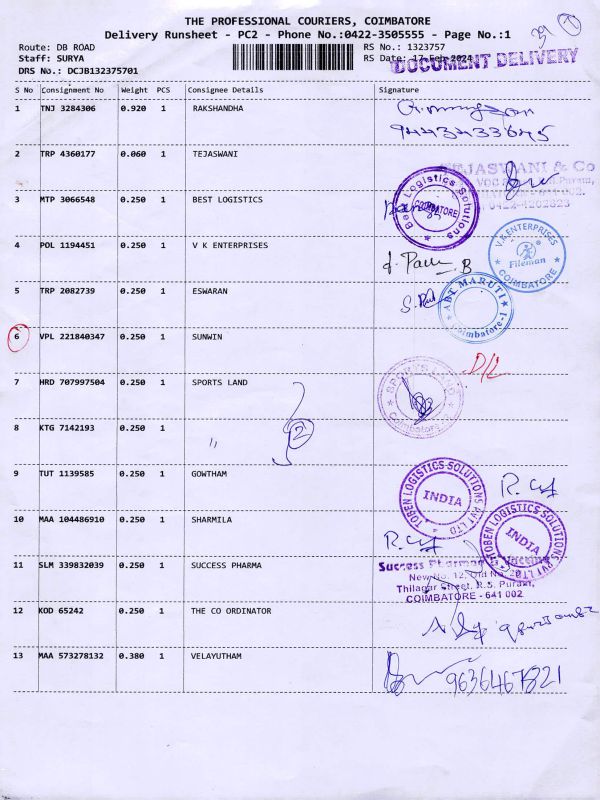 THE PROFESSIONAL COURIERS, COIMBATORE
Delivery Runsheet - PC2 - Phone No.:0422-3505555 - Page No.:1
39 1
Route: DB ROAD RS No.: 1323757
Staff: SURYA RS Date: 17-Feb-2024
DOCUMENT DELIVERY
DRS No.: DCJB132375701
S No Consignment No Weight PCS Consignee Details Signature
1 TNJ 3284306 0.920 1 RAKSHANDHA
2 TRP 4360177 0.060 1 TEJASWANI
TEJASWANI & Co
3 MTP 3066548 0.250 1 BEST LOGISTICS
Logistics Solutions COIMBATORE
4 POL 1194451 0.250 1 V K ENTERPRISES
V.K ENTERPRISES Fileman COIMBATORE
5 TRP 2082739 0.250 1 ESWARAN
ABT MARUTI Coimbatore-1
6 VPL 221840347 0.250 1 SUNWIN
D/L
7 HRD 707997504 0.250 1 SPORTS LAND
SPORTS LAND Coimbatore
8 KTG 7142193 0.250 1 " 2
9 TUT 1139585 0.250 1 GOWTHAM
TOBEN LOGISTICS SOLUTIONS PVT LTD INDIA
10 MAA 104486910 0.250 1 SHARMILA
TOBEN LOGISTICS SOLUTIONS PVT LTD INDIA
11 SLM 339832039 0.250 1 SUCCESS PHARMA
Success Pharma & Vaccine
New No. 12, Old No.
Thilagar Street, R.S. Puram,
COIMBATORE - 641 002
12 KOD 65242 0.250 1 THE CO ORDINATOR
13 MAA 573278132 0.380 1 VELAYUTHAM